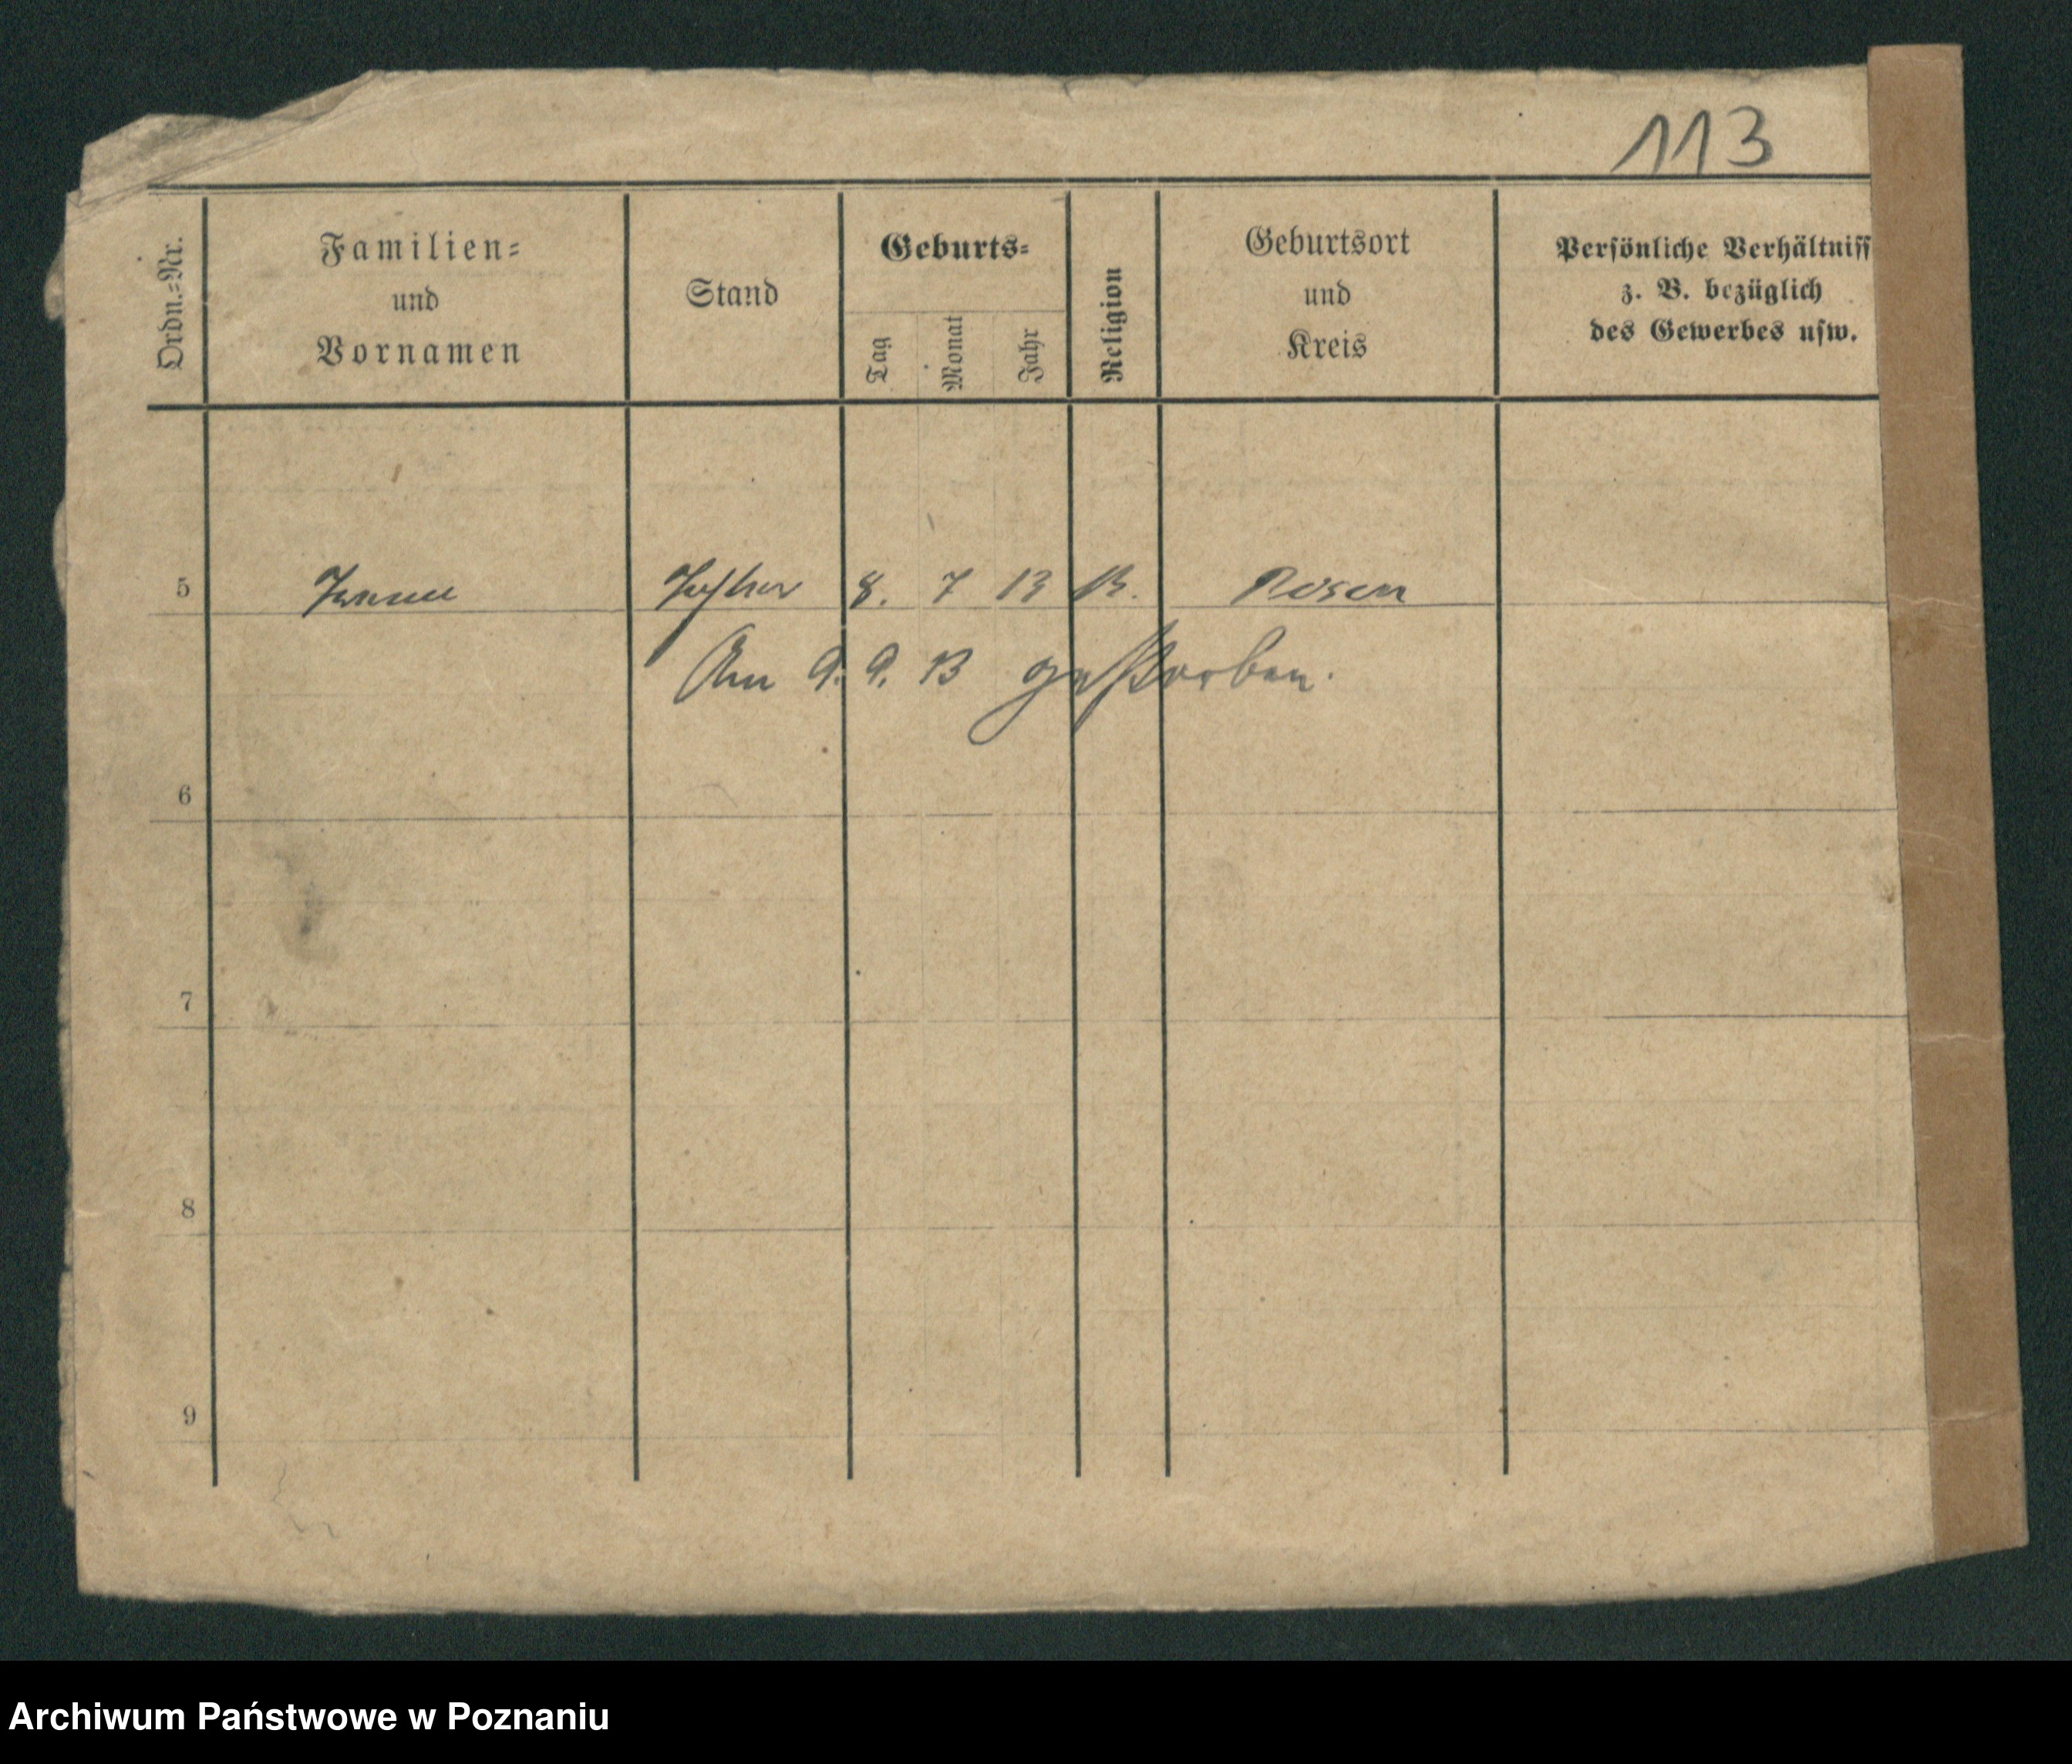 113
Ordn.=Nr.
Familien=
und
Vornamen
Stand
Geburts=
Tag
Monat
Jahr
Religion
Geburtsort
und
Kreis
Persönliche Verhältniss
z. B. bezüglich
des Gewerbes usw.
5 8. 7 13 Posen
Am 9. 9. 13 gestorben.
6
7
8
9
Archiwum Państwowe w Poznaniu